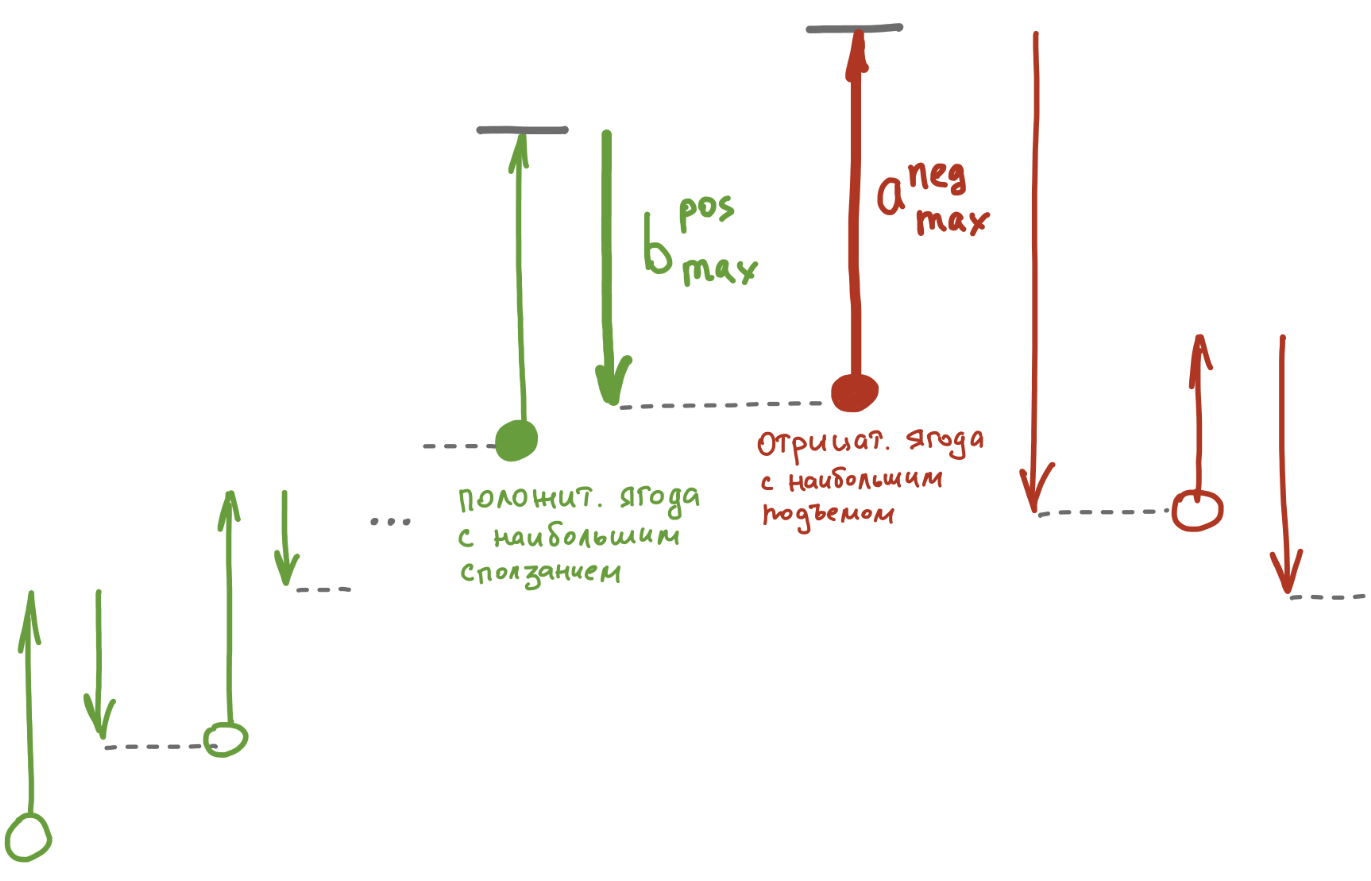 b pos
max
a neg
max
положит. ягода
с наибольшим
сползанием
...
отрицат. ягода
с наибольшим
подъемом